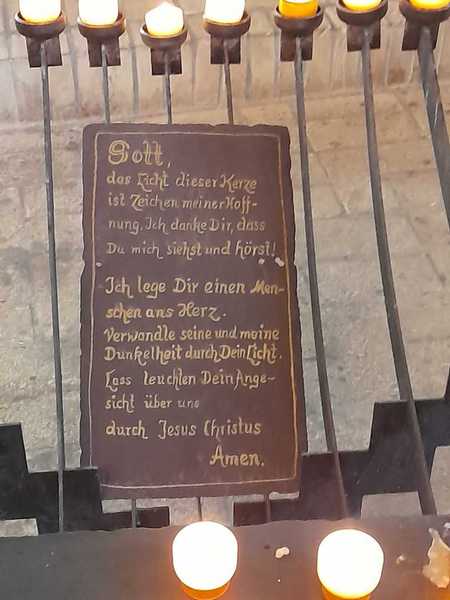 Gott,
das Licht dieser Kerze
ist Zeichen meiner Hoff-
nung. Ich danke Dir, dass
Du mich siehst und hörst!
Ich lege Dir einen Men-
schen ans Herz.
Verwandle seine und meine
Dunkelheit durch Dein Licht.
Lass leuchten Dein Ange-
sicht über uns
durch Jesus Christus
Amen.